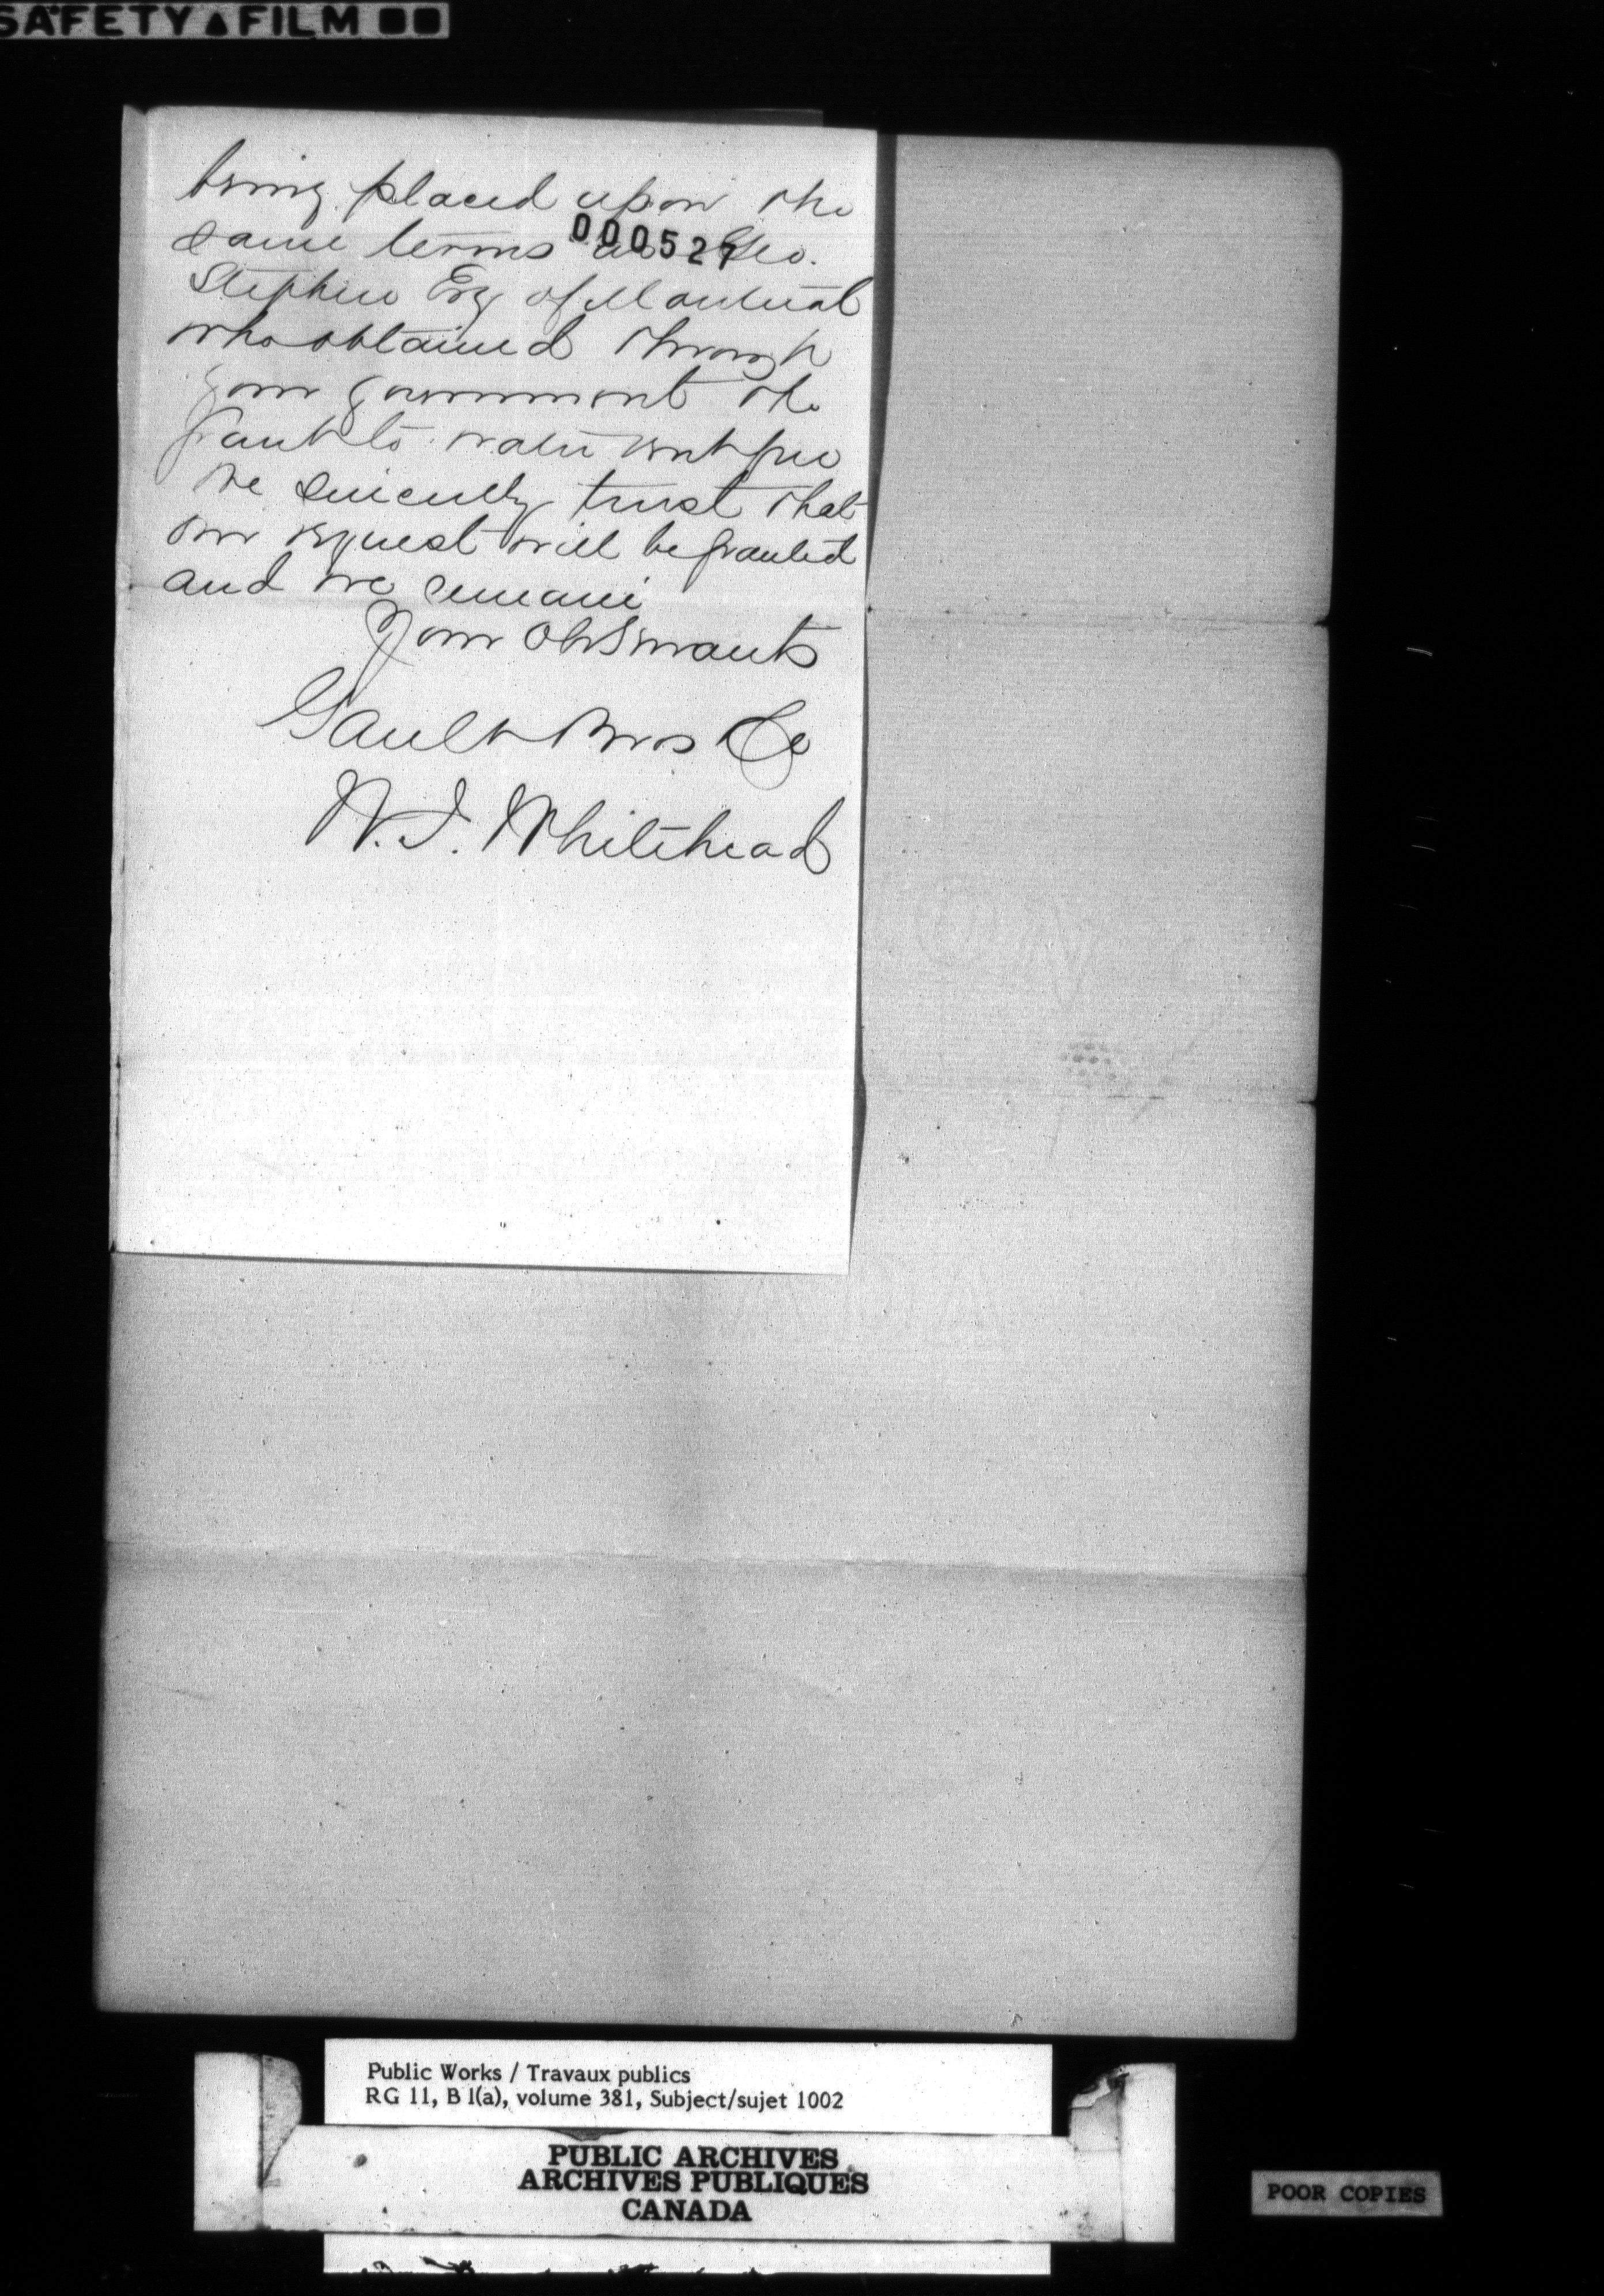 SAFETY FILM
being placed upon the
same terms as Geo.
000527
Stephen Esq of Montreal
who obtained through
your government the
grant to water rent free
We sincerely trust that
our request will be granted
and we remain
Your Ob Servants
Gault Bros & Co
W. J. Whitehead
Public Works / Travaux publics
RG 11, B 1(a), volume 381, Subject/sujet 1002
PUBLIC ARCHIVES
ARCHIVES PUBLIQUES
CANADA
POOR COPIES